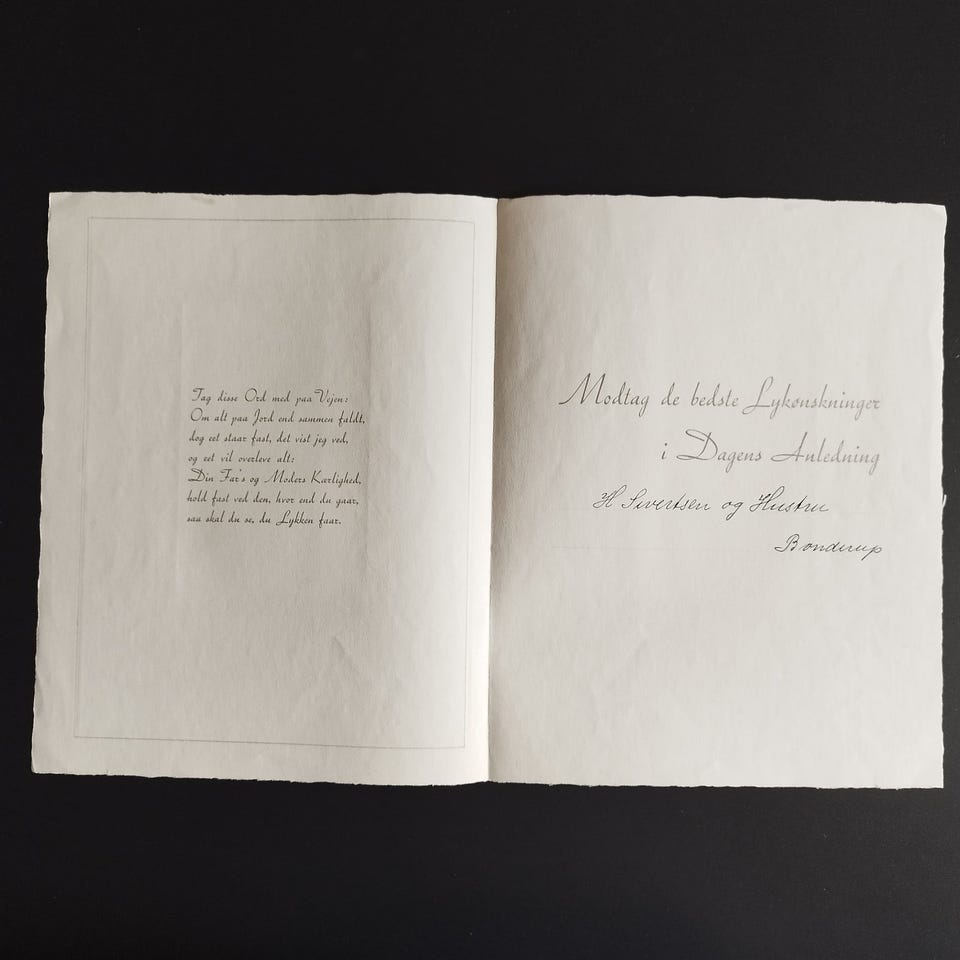 Tag disse Ord med paa Vejen:
Om alt paa Jord end sammen faldt,
dog eet staar fast, det vist jeg ved,
og eet vil overleve alt:
Din Far's og Moders Kærlighed,
hold fast ved den, hvor end du gaar,
saa skal du se, du Lykken faar.
Modtag de bedste Lykønskninger
i Dagens Anledning
H Sivertsen og Hustru
Bonderup